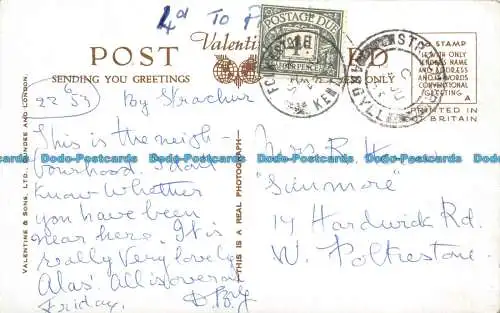 4d TO P
POST
Valentine
RD
SENDING YOU GREETINGS
ESS ONLY
POSTAGE DUE
FOUR PENCE
KENT
ARGYLL
STAMP
WITH ONLY
NAME
AND ADDRESS
AND WORDS
CONVENTIONAL
GREETING.
A
PRINTED IN
BRITAIN
VALENTINE & SONS, LTD., DUNDEE AND LONDON.
THIS IS A REAL PHOTOGRAPH
22 6 53
By Strachur
This is the neigh-
bourhood. I don't
know whether
you have been
near here. It is
really very lovely
Alas! All is over on
Friday.
Mrs. R. H
"Sunmore"
14 Hardwick Rd.
W. Folkestone.
Dodo-Postcards Dodo-Postcards Dodo-Postcards Dodo-Postcards Dodo-Postcards
Dodo-Postcards Dodo-Postcards Dodo-Postcards Dodo-Postcards Dodo-Postcards